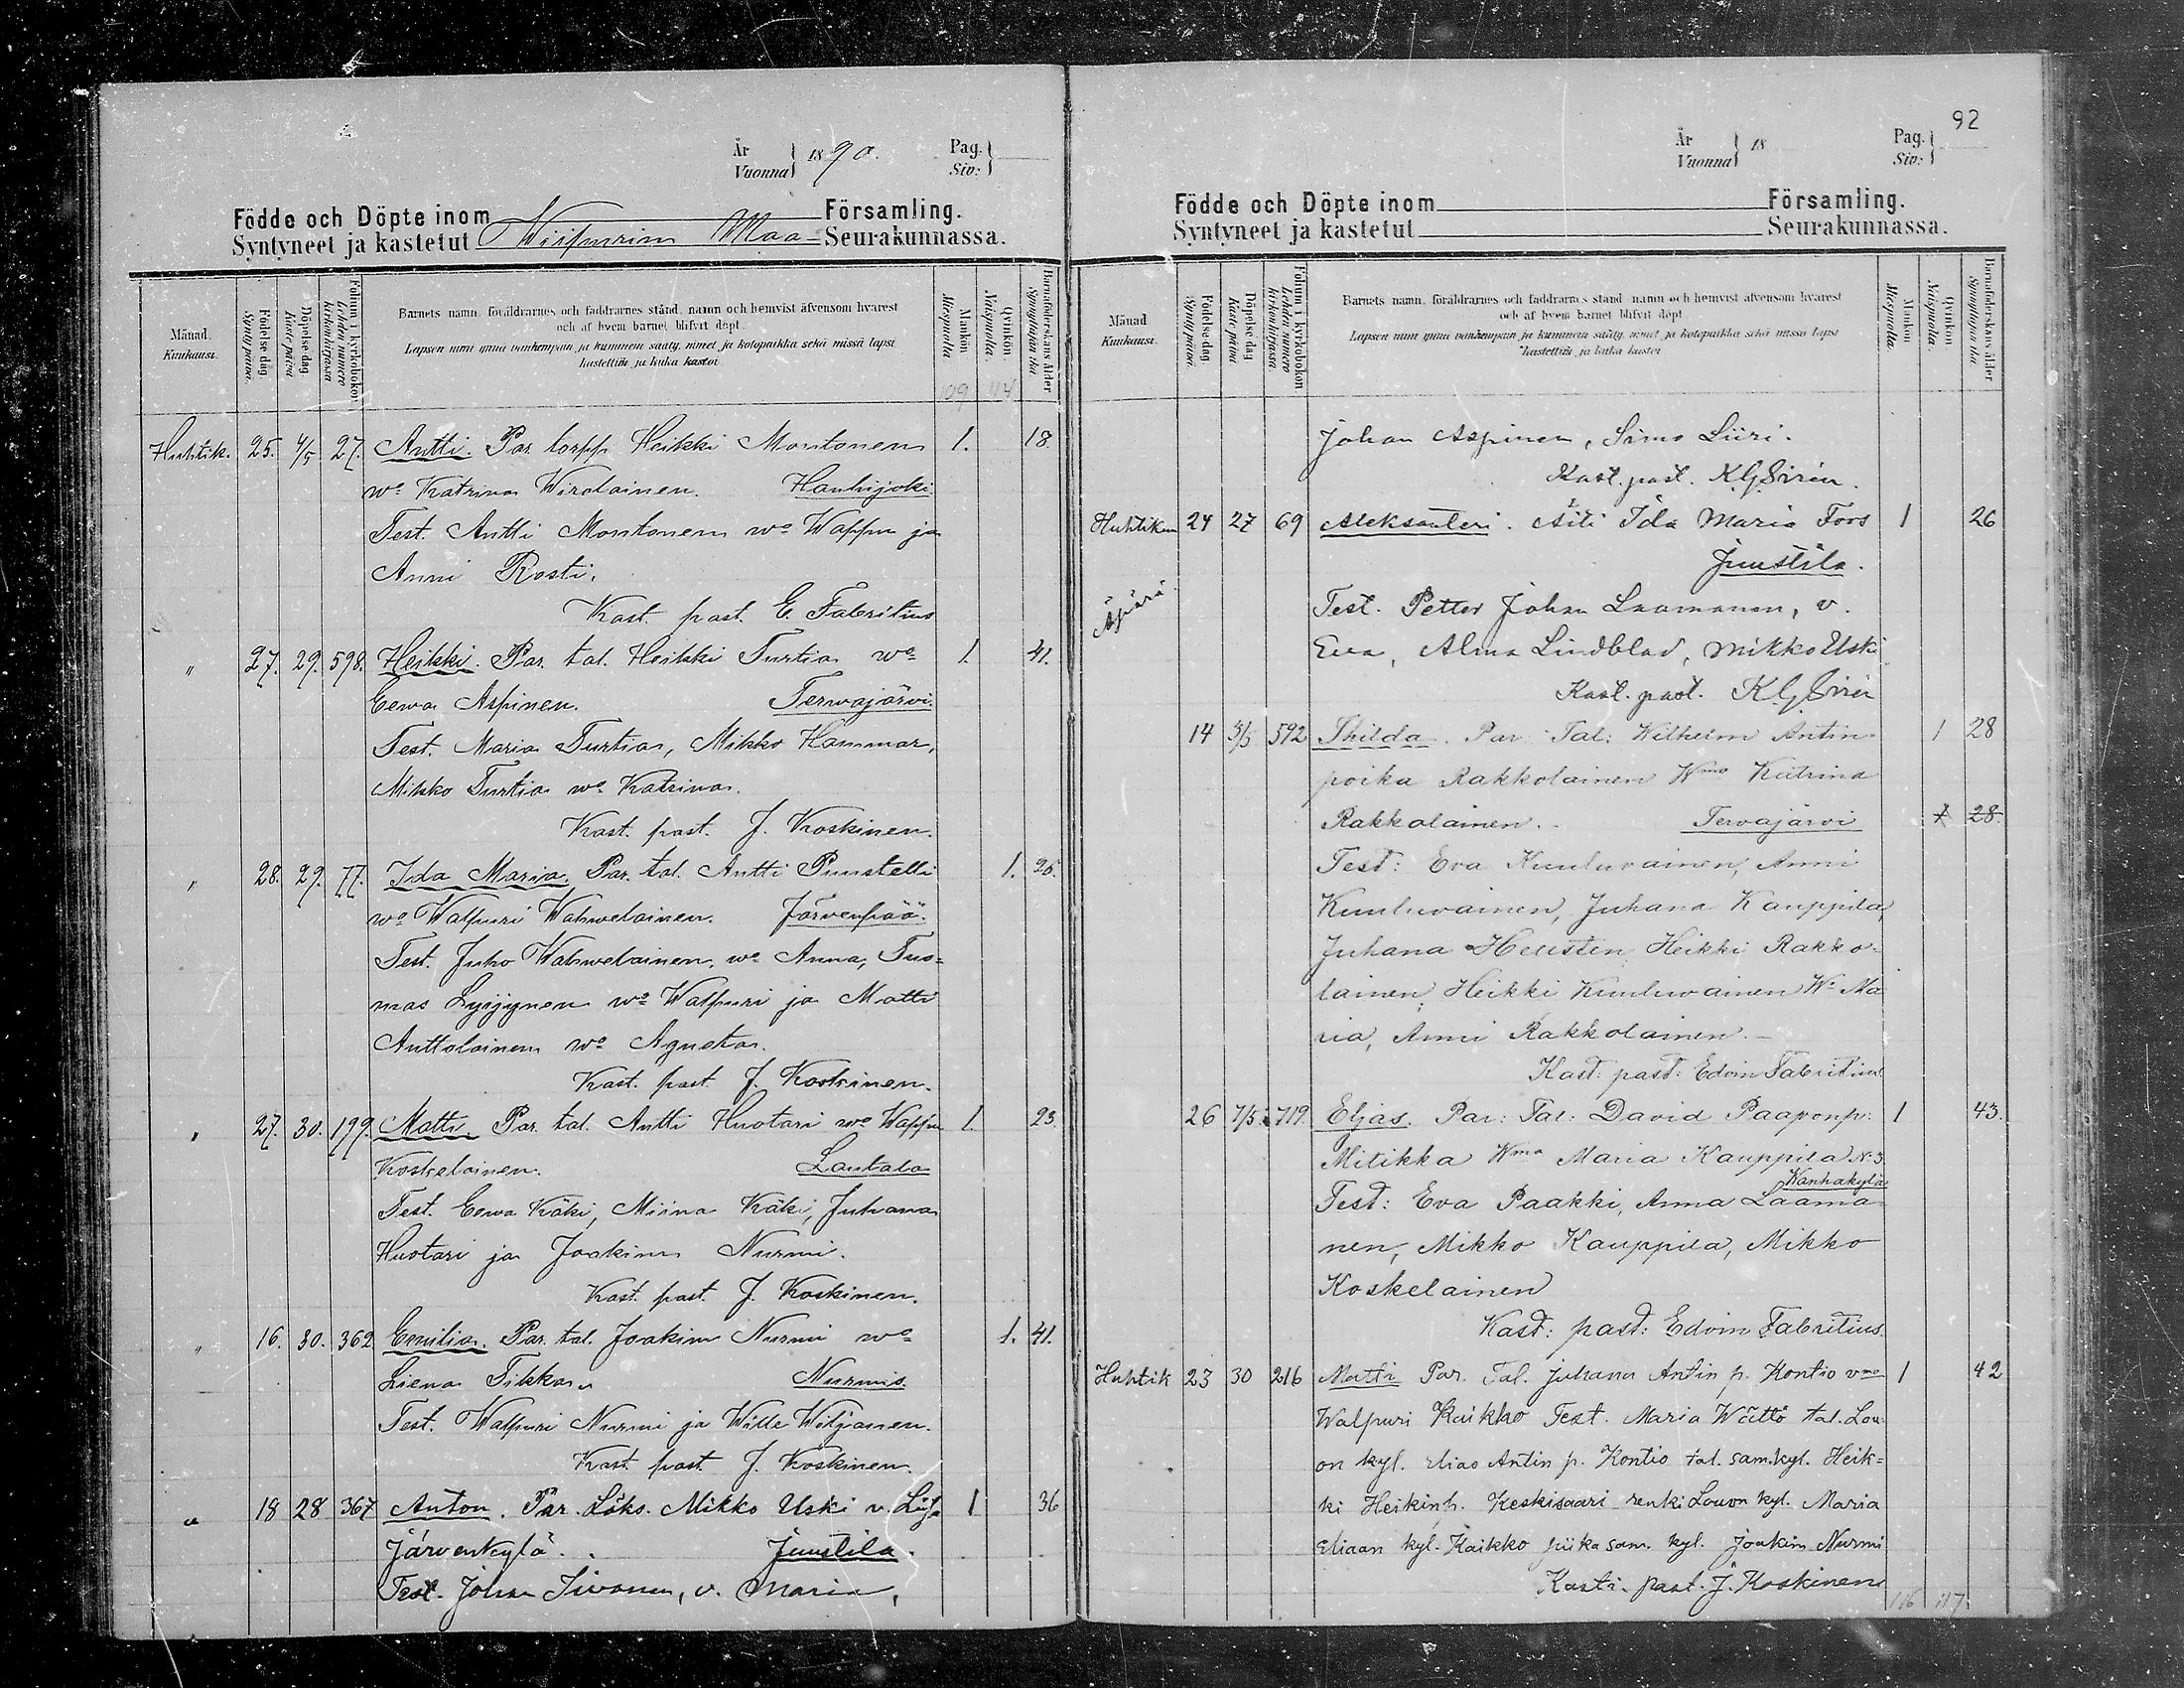 År
Vuonna } 1890.
Pag.
Siv: }
Födde och Döpte inom Wiipurin Maa- Församling.
Syntyneet ja kastetut Seurakunnassa.
Månad.
Kuukausi.
Födelse dag.
Synty päivä.
Döpelse dag
Kaste päivä
Folium i kyrkoboken
Lehden numero kirkonkirjassa
Barnets namn, föräldrarnes och faddrarnes stånd, namn och hemvist äfvensom hvarest
och af hvem barnet blifvit döpt.
Lapsen nimi ynnä vanhempain ja kummein sääty, nimet ja kotopaikka sekä missä lapsi
kastettiin ja kuka kastoi.
Mankön
Miespuolia.
Qvinkön
Naispuolia.
Barnaföderskans ålder
Synnyttäjän ikä
109 114
Huhtik. 25. 4/5 27. Antti. Par. torpp. Heikki Montonen 1. 18
wo Katrina Wirolainen. Hanhijoki
Test. Antti Montonen wo Wappu ja
Anni Rosti.
Kast. past. E. Fabritius
" 27. 29. 598. Heikki. Par. tal. Heikki Turtia wo 1. 41.
Eewa Aspinen. Terwajärvi.
Test. Maria Turtia, Mikko Hammar,
Mikko Turtia wo Katrina.
Kast. past. J. Koskinen.
" 28. 29. 77. Ida Maria. Par. tal. Antti Puustelli 1. 26.
wo Walpuri Wahwelainen. Järvenpää.
Test. Juho Wahwelainen, wo Anna, Tuo=
mas Lyijynen wo Walpuri ja Matti
Anttolainen wo Agusta.
Kast. past. J. Koskinen.
" 27. 30. 199. Matti. Par. tal. Antti Huotari wo Wappu 1. 23.
Koskelainen. Lautala
Test. Eewa Käki, Miina Käki, Juhana
Huotari ja Joakim Nurmi.
Kast. past. J. Koskinen.
" 16. 30. 362 Eemilia. Par. tal. Joakim Nurmi wo 1. 41.
Liena Tikka. Nurmis.
Test. Walpuri Nurmi ja Wille Wiljanen.
Kast. past. J. Koskinen.
" 18 28 367 Anton. Par. Löks. Mikko Uski v. Liisa 1 36
Järvenkylä. Juustila.
Test. Johan Iivonen, v. Maria,
92
År
Vuonna } 18
Pag.
Siv: }
Födde och Döpte inom Församling.
Syntyneet ja kastetut Seurakunnassa.
Månad
Kuukausi.
Födelse dag.
Synty päivä.
Döpelse dag
Kaste päivä
Folium i kyrkoboken
Lehden numero kirkonkirjassa
Barnets namn, föräldrarnes och faddrarnes stånd, namn och hemvist äfvensom hvarest
och af hvem barnet blifvit döpt.
Lapsen nimi ynnä vanhempain ja kummein sääty, nimet ja kotopaikka sekä missä lapsi
kastettiin ja kuka kastoi
Mankön
Miespuolia.
Qvinkön
Naispuolia.
Barnaföderskans ålder
Synnyttäjän ikä
Johan Aspinen, Simo Liiri.
Kast. past. K.G. Sirén.
Huhtikuu 24 27 69 Aleksanteri. Äiti I. Ida Maria Fors 1 26
Juustila.
Äpärä. Test. Petter Johan Laamanen, v.
Eva, Alma Lindblad, Mikko Uski
Kast. past. K.G. Sirén
14 3/5 592 Thilda. Par: Tal: Wilhelm Antin- 1 28
poika Rakkolainen Wmo Katrina
Rakkolainen. Tervajärvi 1 28.
Test: Eva Kuuluvainen, Anni
Kuuluvainen, Juhana Kauppila,
Juhana Heusten, Heikki Rakko-
lainen, Heikki Kuuluvainen Wo Ma
ria, Anni Rakkolainen.
Kast: past: Edvin Fabritius
26 7/5. 719. Eljas. Par: Tal: David Paavonp: 1 43.
Mitikka Wmo Maria Kauppila N:3
Wanhakylä
Test: Eva Paakki, Anna Laama
nen, Mikko Kauppila, Mikko
Koskelainen
Kast: past: Edvin Fabritius.
Huhtik 23 30 216 Matti Par. Tal. Juhana Antin p. Kontio vmo 1 42
Walpuri Kaikko Test. Maria Wättö tal. Lou
on kyl. Elias Antin p. Kontio tal. sam. kyl. Heik=
ki Heikinp. Keskisaari renki Louon kyl. Maria
Eliaan kyl. Kaikko piika sam. kyl. Joakim Nurmi
Kasti. past. J. Koskinen
116 117.